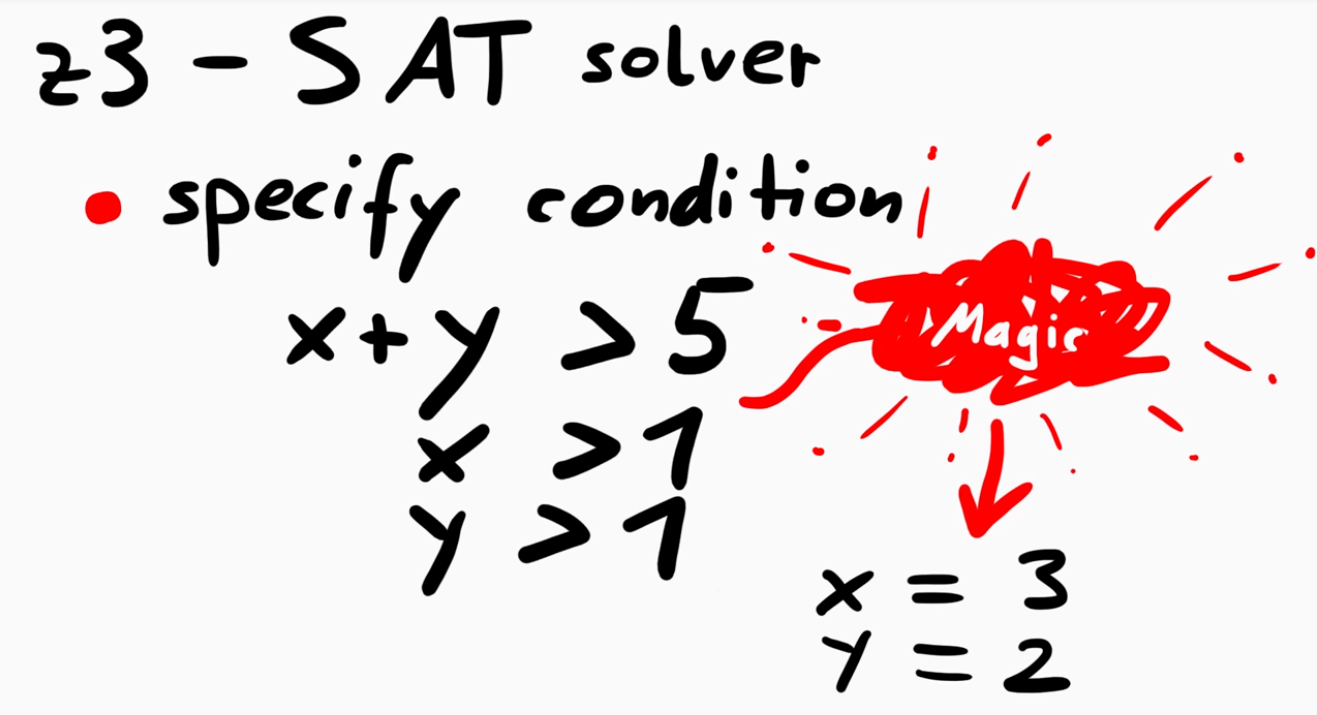 z3 - SAT solver
• specify condition
x+y > 5
x > 1
y > 1
Magic
x = 3
y = 2